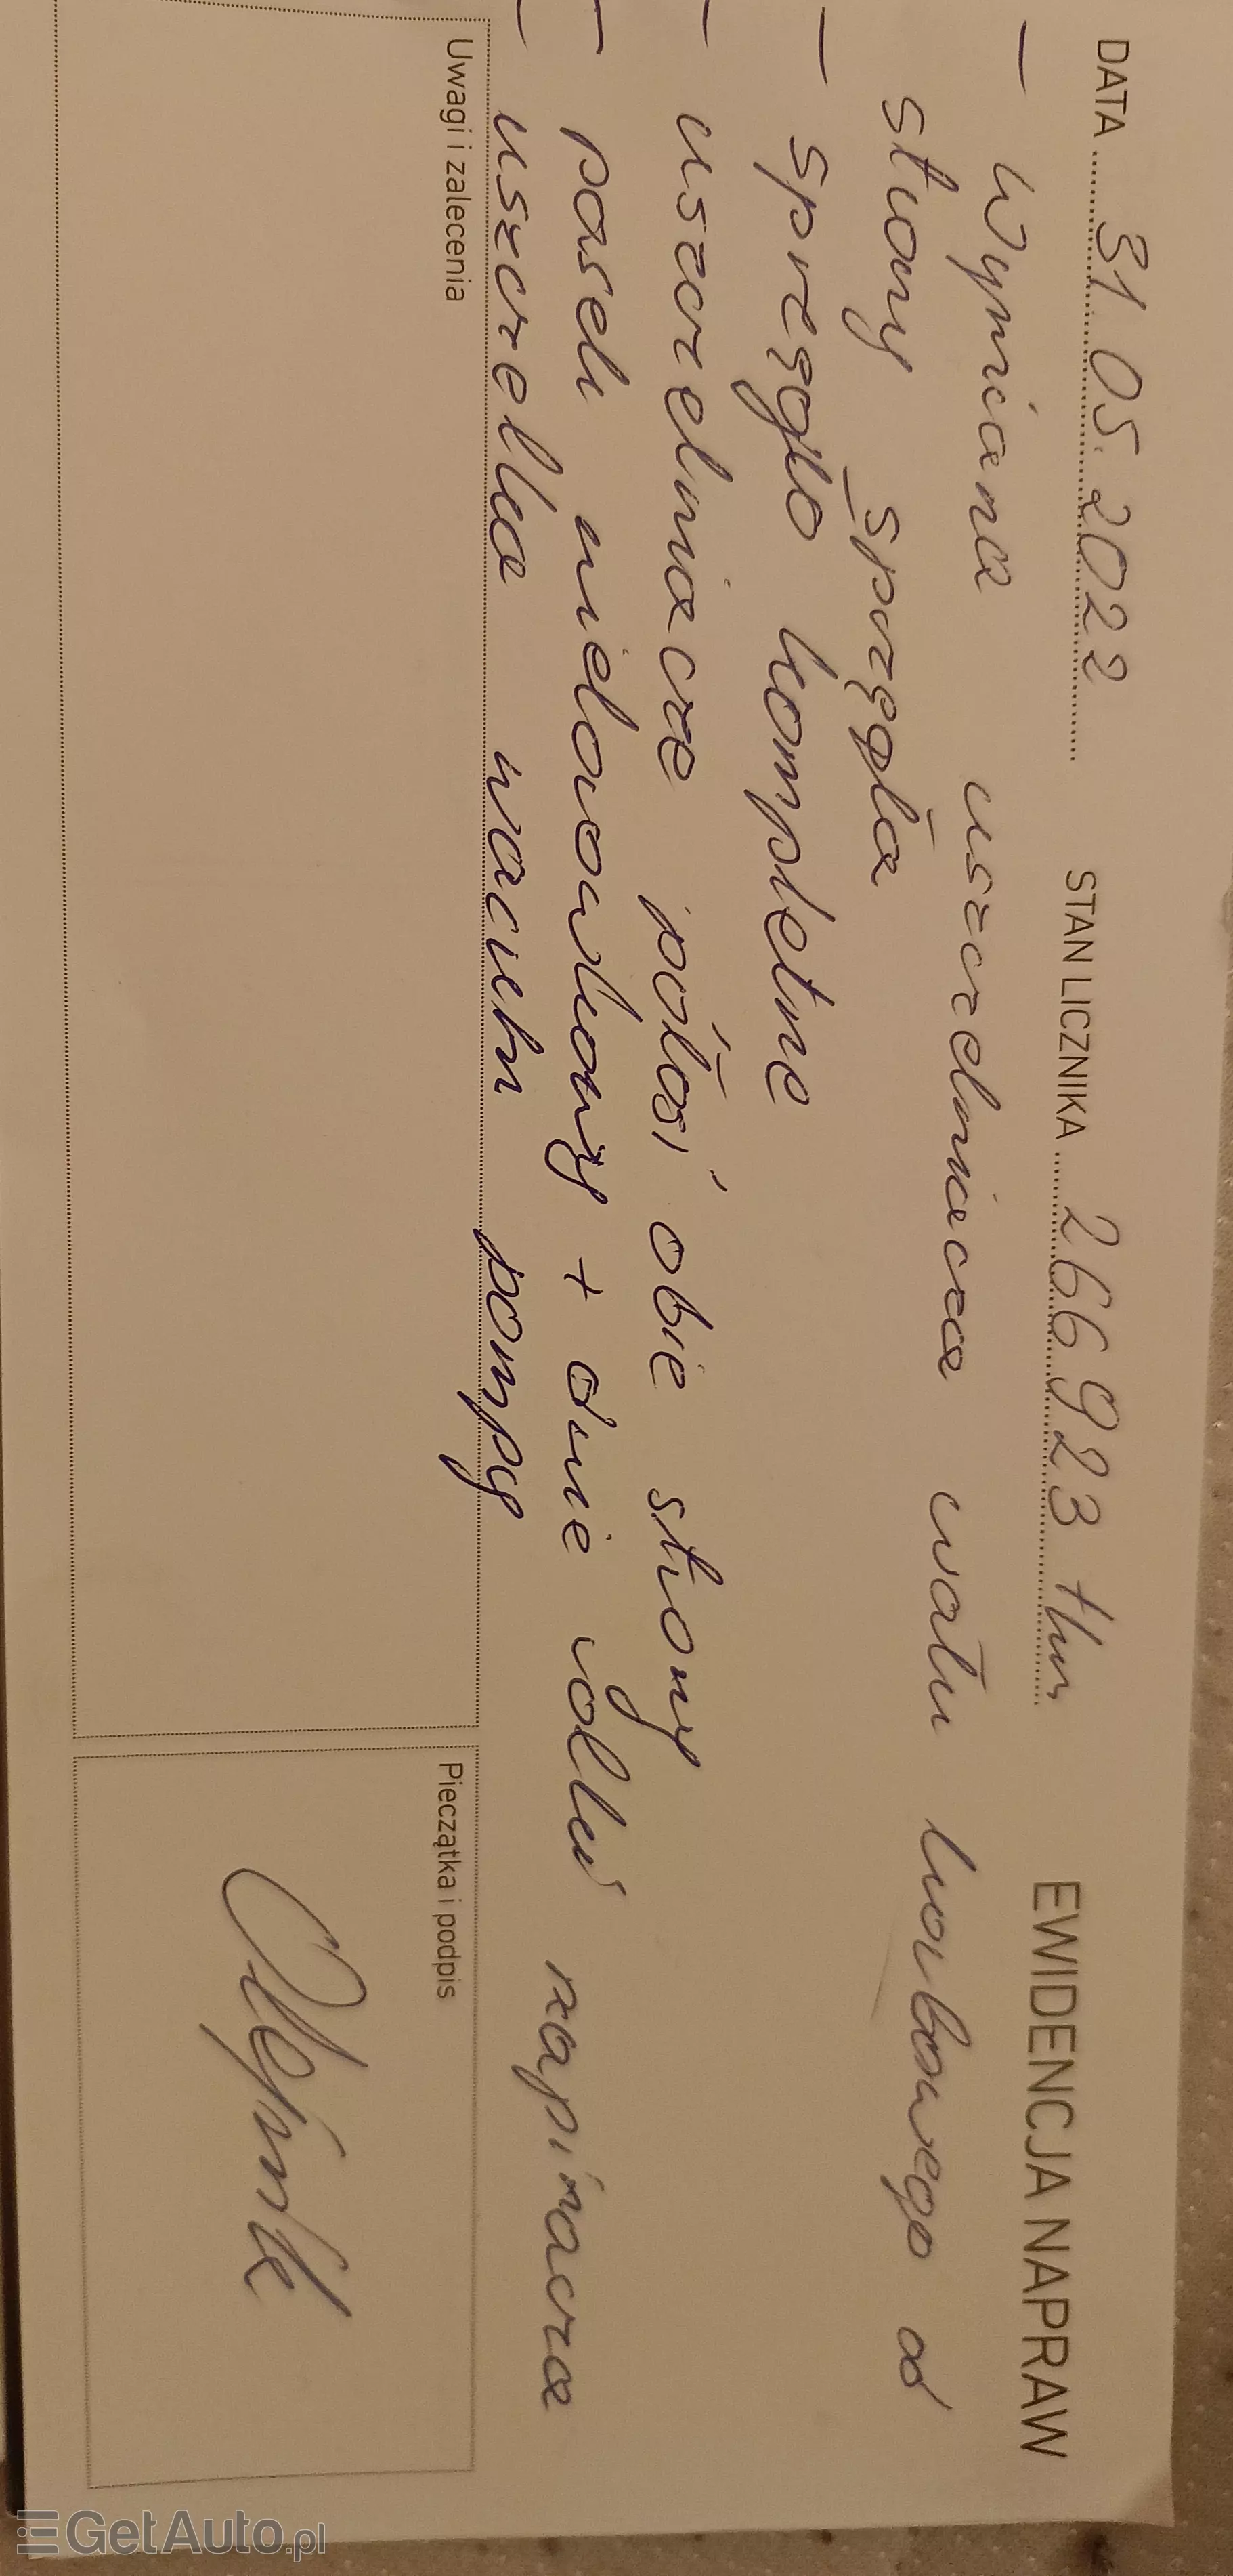 DATA 31.05.2022 STAN LICZNIKA 266 923 tkm EWIDENCJA NAPRAW
- Wymiana uszczelniacza wału korbowego od
strony sprzęgła
- sprzęgło kompletne
- uszczelniacze półosi obie strony
- pasek wielorowkowy + dwie rolki napinacza
- uszczelka vacum pompy
Uwagi i zalecenia
Pieczątka i podpis
GetAuto.pl